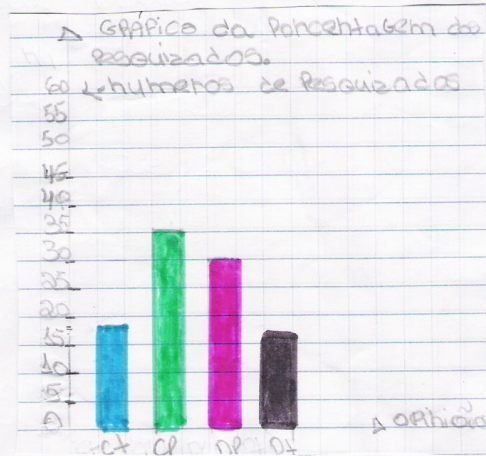 GRÁFICO da Porcentagem dos
Pesquizados.
60 ←numeros de Pesquizados
55
50
45
40
35
30
25
20
15
10
5
0
Opinião
CT CP DP DT